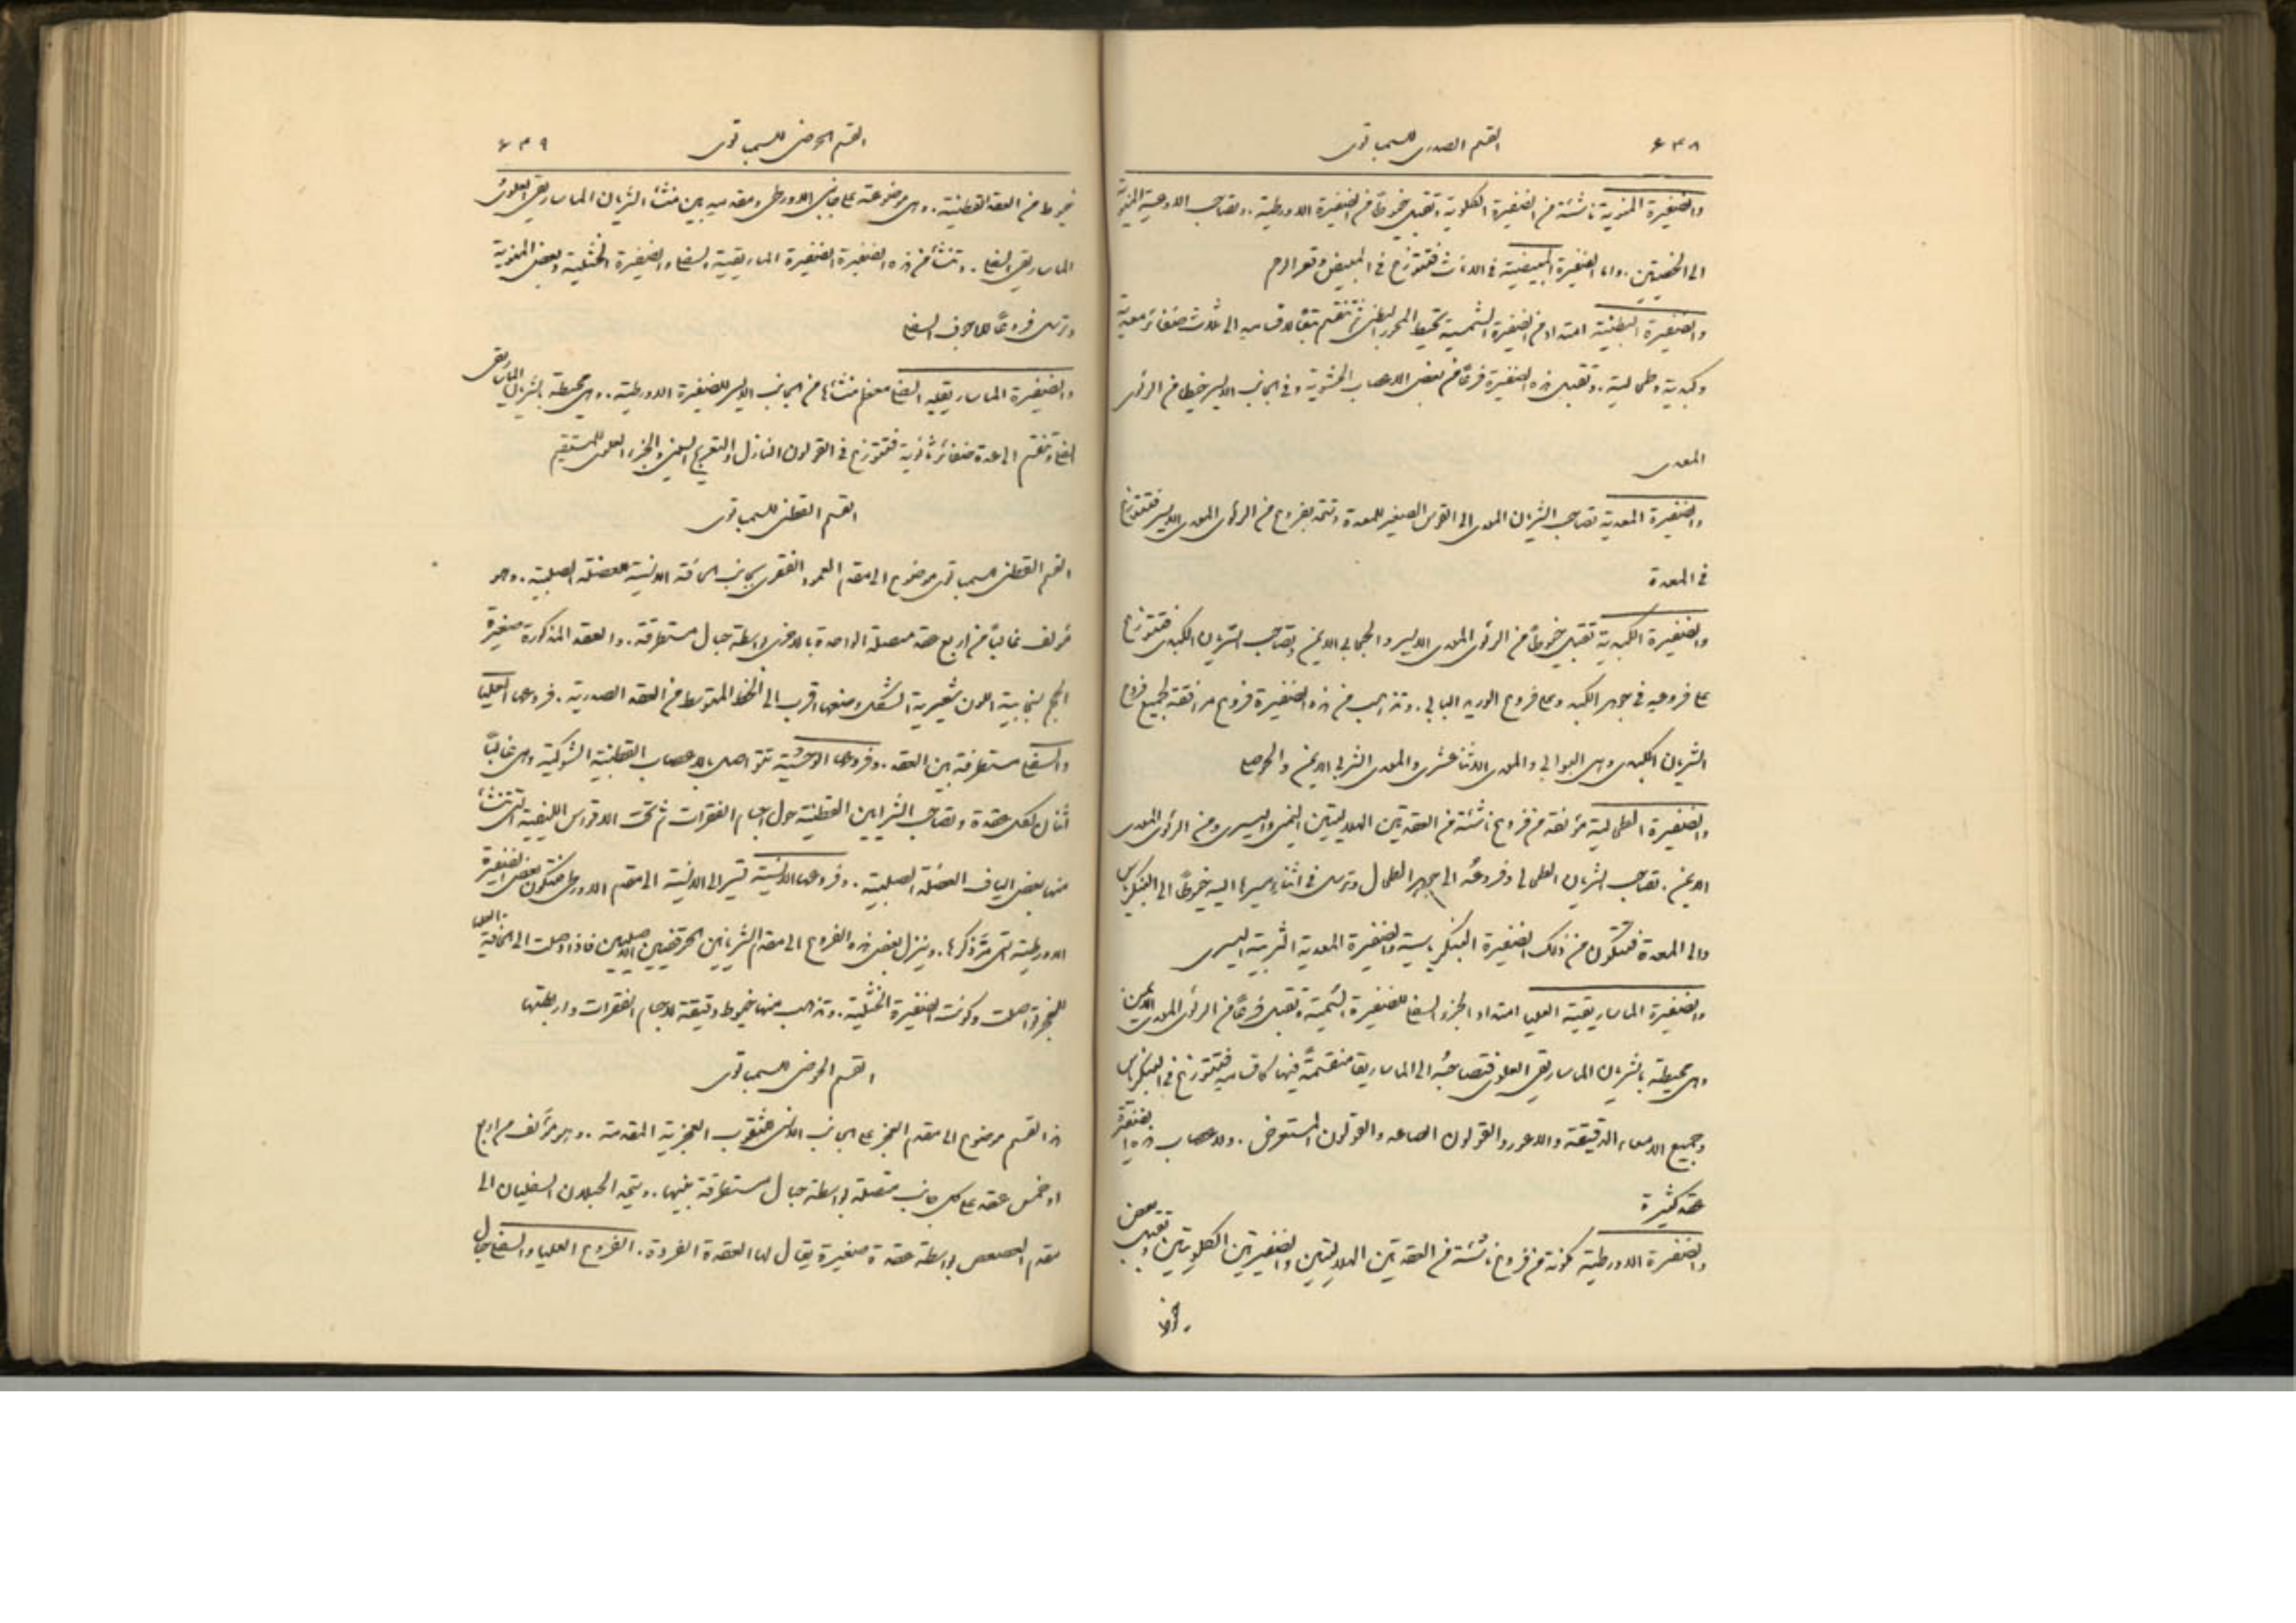 ٦٣٨ القسم الصدري للسمباتوي
والضفيرة المنوية ناشئة من الضفيرة الكلوية وتقبل خيوطًا من الضفيرة الاورطية. وتصاحب الاوعية المنوية
الى الخصيتين. واما الضفيرة المبيضية في الاناث فتتوزع في المبيض وقعر الرحم
والضفيرة البطنية امتداد من الضفيرة الشمسية تحيط المحور البطني ثم تنقسم بانقسامه الى ثلاث ضفائر معدية
وكبدية وطحالية. وتقبل هذه الضفيرة فرعًا من بعض الاعصاب الحشوية وفي الجانب الايسر خيطا من الرئوي
المعدي
والضفيرة المعدية تصاحب الشريان المعدي الى القوس الصغير للمعدة وتتحد بفروع من الرئوي المعدي الايسر فتتوزع
في المعدة
والضفيرة الكبدية تقبل خيوطًا من الرئوي المعدي الايسر والحجابي الايمن وتصاحب الشريان الكبدي فتتوزع
على فروعه في جوهر الكبد وعلى فروع الوريد البابي. وتذهب من هذه الضفيرة فروع مرافقة لجميع فروع
الشريان الكبدي وهي البوابي والمعدي الاثناعشري والمعدي الثربي الايمن والحوصلي
والضفيرة الطحالية مؤلفة من فروع ناشئة من العقدتين الهلاليتين اليمنى واليسرى ومن الرئوي المعدي
الايمن. تصاحب الشريان الطحالي وفروعهُ الى جوهر الطحال وترسل في اثناء مسيرها اليه خيوطًا الى البنكرياس
والى المعدة فتتكون من ذلك الضفيرة البنكرياسية والضفيرة المعدية الثربية اليسرى
والضفيرة الماساريقية العليا امتداد الجزء السفلي للضفيرة الشمسية وتقبل فرعًا من الرئوي المعدي الايمن
وهي محيطة بالشريان الماساريقي العلوي فتصاحبهُ الى الماساريقا منقسمةً فيها كانقسامه فتتوزع في البنكرياس
وجميع الامعاء الدقيقة والاعور والقولون الصاعد والقولون المستعرض. ولاعصاب هذه الضفيرة
عقد كثيرة
والضفيرة الاورطية مكونة من فروع ناشئة من العقدتين الهلاليتين والضفيرتين الكلويتين وتقبل بعض
القسم الحوضي للسمباتوي ٦٣٩
خيوط من العقد القطنية. وهي موضوعة على جانبي الاورطي ومقدمه بين منشاء الشريان الماساريقي العلوي
الماساريقي السفلي. وتنشأ من هذه الضفيرة الضفيرة الماساريقية السفلى والضفيرة الخثلية وبعض المنوية
وترسل فروعًا للاجوف السفلي
والضفيرة الماساريقية السفلى معظم منشائها من الجانب الايسر للضفيرة الاورطية. وهي محيطة بالشريان الماساريقي
السفلي وتنقسم الى عدة ضفائر ثانوية فتتوزع في القولون النازل والتعريج السيني والجزء العلوي للمستقيم
القسم القطني للسمباتوي
القسم القطني للسمباتوي موضوع الى مقدم العمود الفقري بجانب الحافة الانسية للعضلة الصلبية. وهو
مؤلف غالبًا من اربع عقد متصلة الواحدة بالاخرى بواسطة حبال مستطرقة. والعقد المذكورة صغيرة
الحجم سنجابية اللون شعيرية الشكل وضعها اقرب الى الخط المتوسط من العقد الصدرية. فروعها العليا
والسفلى مستطرقة بين العقد. وفروعها الوحشية تتواصل بالاعصاب القطنية الشوكية وهي غالبًا
اثنان لكل عقدة وتصاحب الشرايين القطنية حول اجسام الفقرات ثم تحت الاقواس الليفية التي تنشأ
منها بعض الياف العضلة الصلبية. وفروعها الانسية تسير الى الانسية الى مقدم الاورطي فتتكون بعض الضفيرة
الاورطية التي مرَّ ذكرها. وينزل بعض هذه الفروع الى مقدم الشريانين الحرقفيين الاصليين فاذا وصلت الى الحافة العليا
للعجز تواصلت وكونت الضفيرة الخثلية. وتذهب منها خيوط دقيقة لاجسام الفقرات واربطتها
القسم الحوضي للسمباتوي
هذا القسم موضوع الى مقدم العجز على الجانب الانسي للثقوب العجزية المقدمة. وهو مؤلف من اربع
او خمس عقد على كل جانب متصلة بواسطة حبال مستطرقة بينها. ويتحد الحبلان السفليان الى
مقدم العصعص بواسطة عقدة صغيرة يقال لها العقدة الفردة. الفروع العليا والسفلى حبال